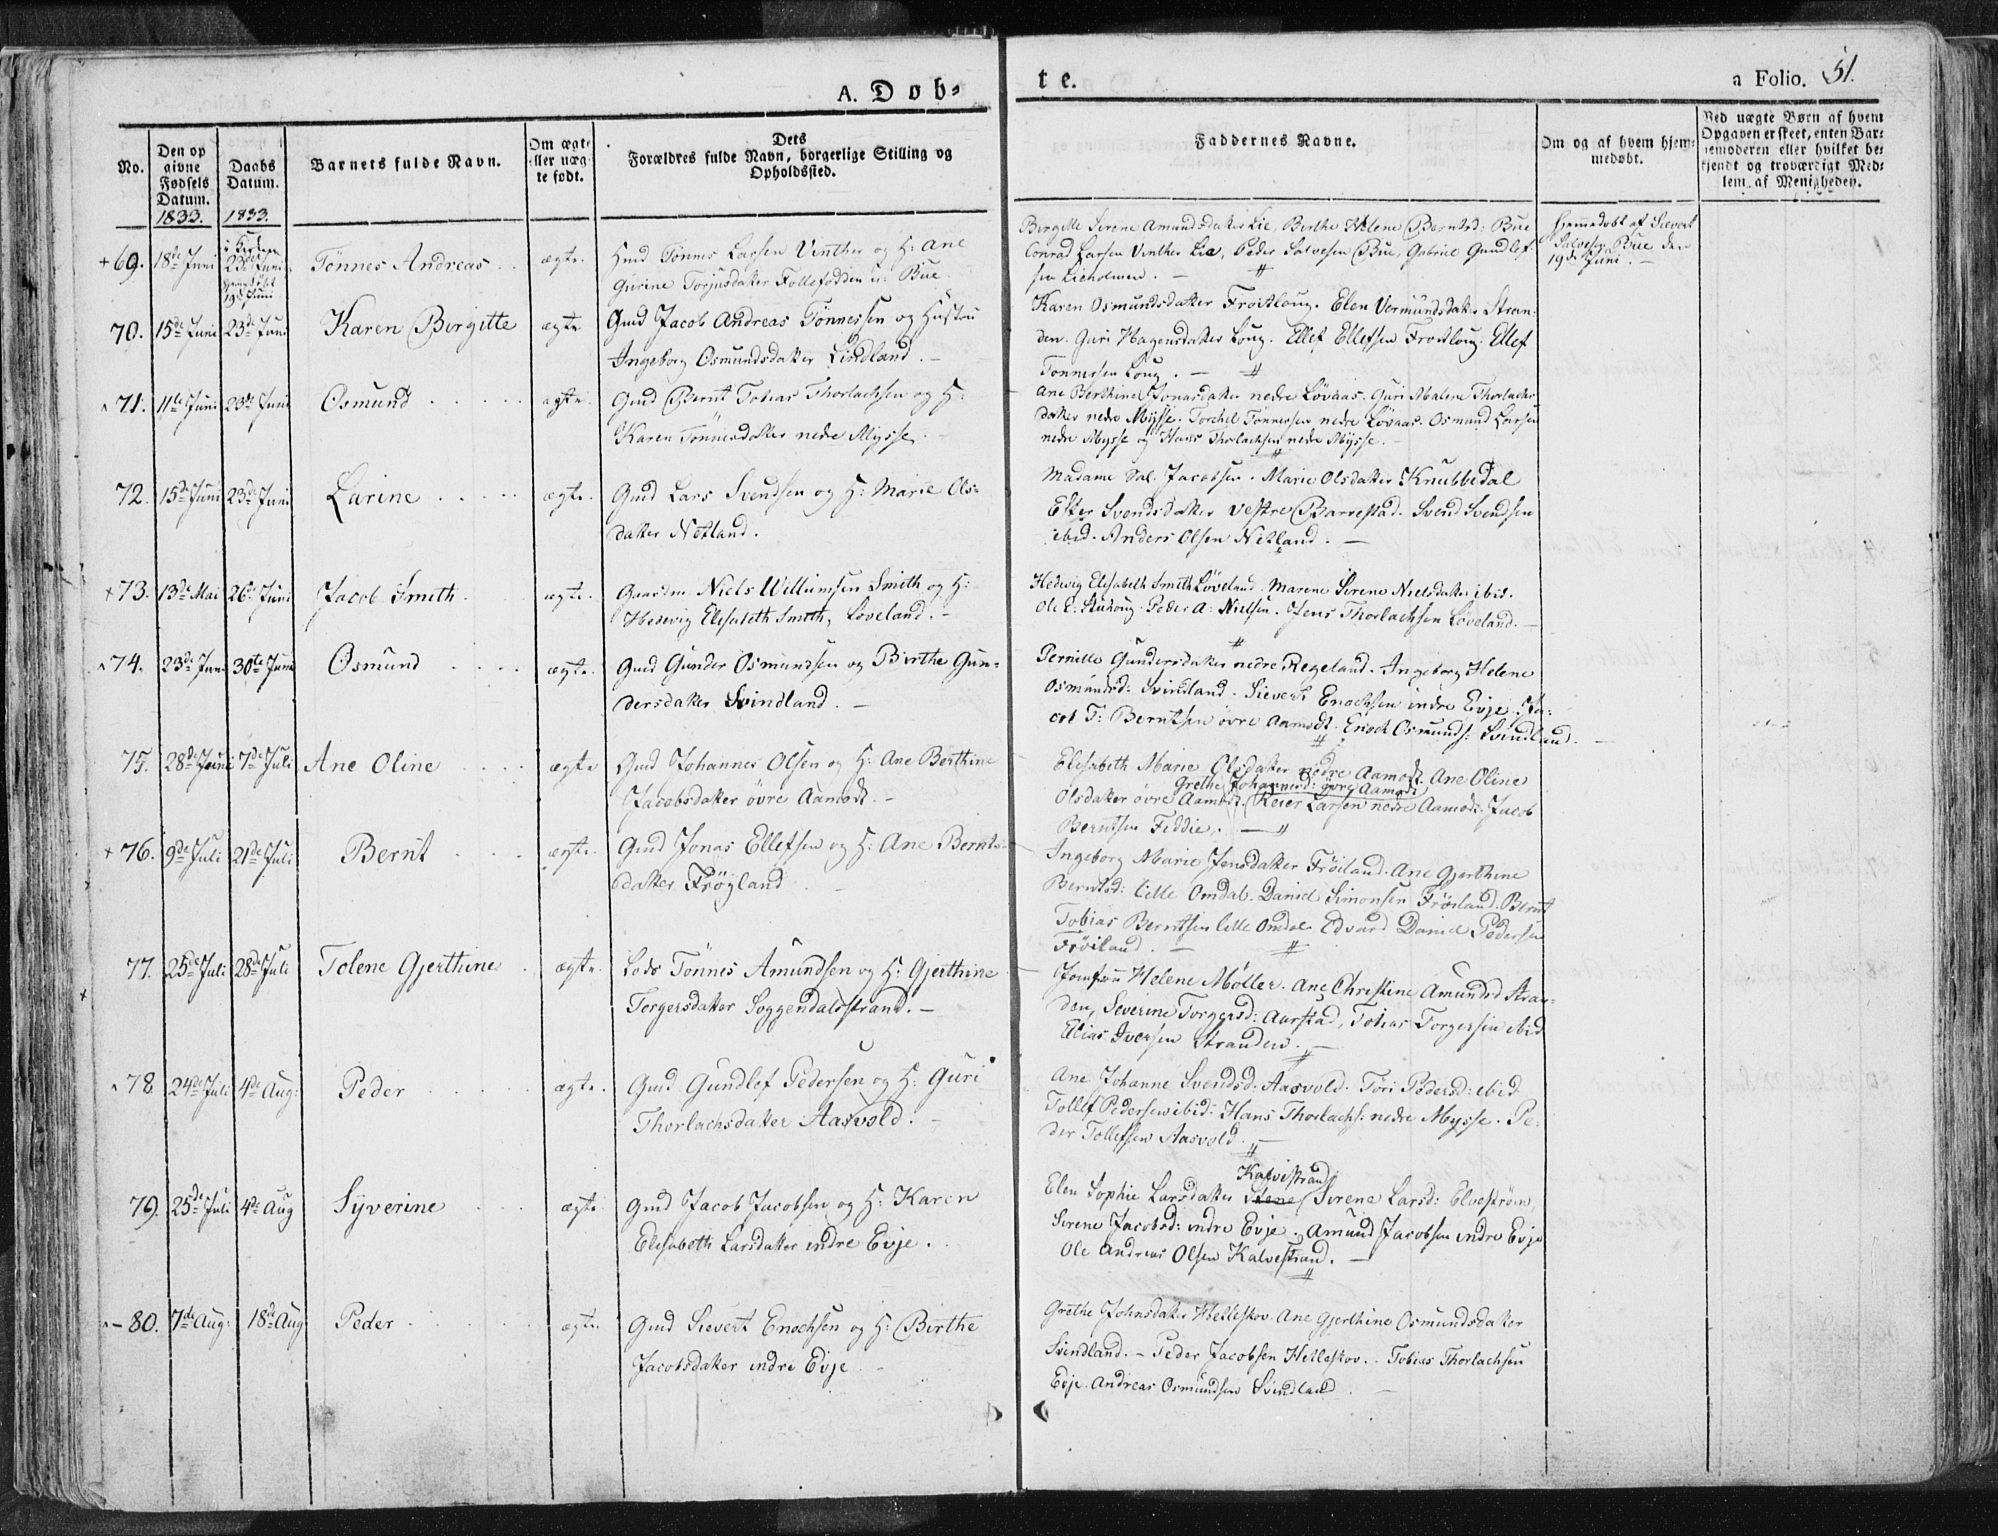 A. Døb-
te.
a Folio. 51.
No.
Den op
givne
Fødsels
Datum.
1833.
Daabs
Datum.
1833.
Barnets fulde Navn.
Om ægt
eller uæg-
te født.
Dets
Forældres fulde Navn, borgerlige Stilling og
Opholdssted.
Faddernes Navne.
Om og af hvem hjem-
medøbt.
Ved uægte Børn af hvem
Opgaven er skeet, enten Bar-
nemoderen eller hvilket be-
kjendt og troværdigt Med-
lem af Menigheden.
+ 69. 18de Juni
i Kirken
23de Juni
hjemdøbt
19de Juni
Tønnes Andreas
ægte.
Gmd Tønnes Larsen Vinther og H: Ane
Gurine Torjusdatter Follefodden u: Bue.
Birgitte Serene Amundsdatter Lie, Berthe Helene Berntsd: Bue
Conrad Larsen Vinther Lie, Peder Salvesen Bue, Gabriel Gundlef
sen Lieholmen. -
Hjemmedøbt af Sievert
Salvesen Bue den
19de Juni. -
70. 15de Juni 23de Juni Karen Birgitte ægte
Gmd Jacob Andreas Tønnessen og Hustru
Ingeborg Osmundsdatter Lindland. -
Karen Osmundsdatter Froitloug. Elen Vermundsdatter Stran-
den. Guri Hagensdatter Loug. Ellef Ellefsen Froitloug. Ellef
Tønnessen Loug. -
71. 11te Juni 23de Juni Osmund ægte.
Gmd Bernt Tobias Thorlachsen og H:
Karen Tønnesdatter nedre Mysse. -
Ane Berthine Jonasdatter nedre Løvaas. Guri Malene Thorlachs
datter nedre Mysse. Torchel Tønnessen nedre Løvaas. Osmund Larsen
nedre Mysse og Hans Thorlachsen nedre Mysse. -
72. 15de Juni 23de Juni Larine ægte.
Gmd Lars Svendsen og H: Marie Ols-
datter Netland.
Madame Sal. Jacobsen. Marie Olsdatter Knubbedal
Ester Svendsdatter vestre Barrestad. Svend Svendsen
ibid. Anders Olsen Netland. -
+ 73. 13de Mai 26de Juni Jacob Smith. ægte.
Gaardm. Niels Willumsen Smith og H:
Hedevig Elisabeth Smith, Løveland. -
Hedevig Elisabeth Smith Løveland. Marene Serene Nielsdatter ibid.
Ole E: Peder A: Nielsen. Jens Thorlachsen Løveland. -
74. 23de Juni 30te Juni Osmund ægte.
Gmd Gunder Osmundsen og Birthe Gun-
dersdatter Svindland. -
Pernille Gundersdatter nedre Regeland. Ingeborg Helene
Osmundsd: Svindland. Sievert Enochsen indre Evje. Ja-
cob T: Berntsen øvre Aamodt. Enoch Osmunds: Svindland. -
75. 28de Juni 7de Juli Ane Oline ægte
Gmd Johannes Olsen og H: Ane Berthine
Jacobsdatter øvre Aamodt. -
Elisabeth Marie Olsdatter nedre Aamodt. Ane Oline
Grethe Johannesd: øvre Aamodt
Olsdatter øvre Aamodt. Reier Larsen nedre Aamodt. Jacob
Berntsen Feddie. -
+ 76. 9de Juli 21de Juli Bernt ægte.
Gmd Jonas Ellefsen og H: Ane Bernts-
datter Frøyland
Ingeborg Marie Jensdatter Frøiland. Ane Gjerthine
Berntsd: Lille Omdal. Daniel Simonsen Frøiland. Bernt
Tobias Berntsen Lille Omdal Edvard Daniel Pedersen
Frøiland. -
77. 25de Juli 28de Juli Tolene Gjerthine ægte.
Lods Tønnes Amundsen og H: Gjerthine
Torgersdatter Soggendalsstrand. -
Jomfru Helene Møller. Ane Christine Amundsd Stran-
den, Severine Torgersd: Aarstad, Tobias Torgersen ibid
Elias Iversen Stranden. -
78 24de Juli 4de Aug: Peder ægte.
Gmd Gundlef Pedersen og H: Guri
Thorlachsdatter Aasvold. -
Ane Johanne Svendsd. Aasvold. Tori Pedersd: ibid
Tollef Pedersen ibid: Hans Thorlachs: nedre Mysse. Pe-
der Tollefsen Aasvold. -
79. 25de Juli 4de Aug Syverine ægte.
Gmd Jacob Jacobsen og H: Karen
Elisabeth Larsdatter indre Evje.
Kalvestrand
Elen Sophie Larsdatter Serene Larsd: Elvestrøm,
Serene Jacobsd: indre Evje. Amund Jacobsen indre Evje
Ole Andreas Olsen Kalvestrand. -
- 80. 7de Aug: 18de Aug Peder ægte.
Gmd Sievert Enochsen og H: Birthe
Jacobsdatter indre Evje
Grethe Johnsdatter Helleskov. Ane Gjerthine Osmundsdatter
Svindland. - Peder Jacobsen Helleskov. Tobias Thorlachsen
Evje. Andreas Osmundsen Svindland. -